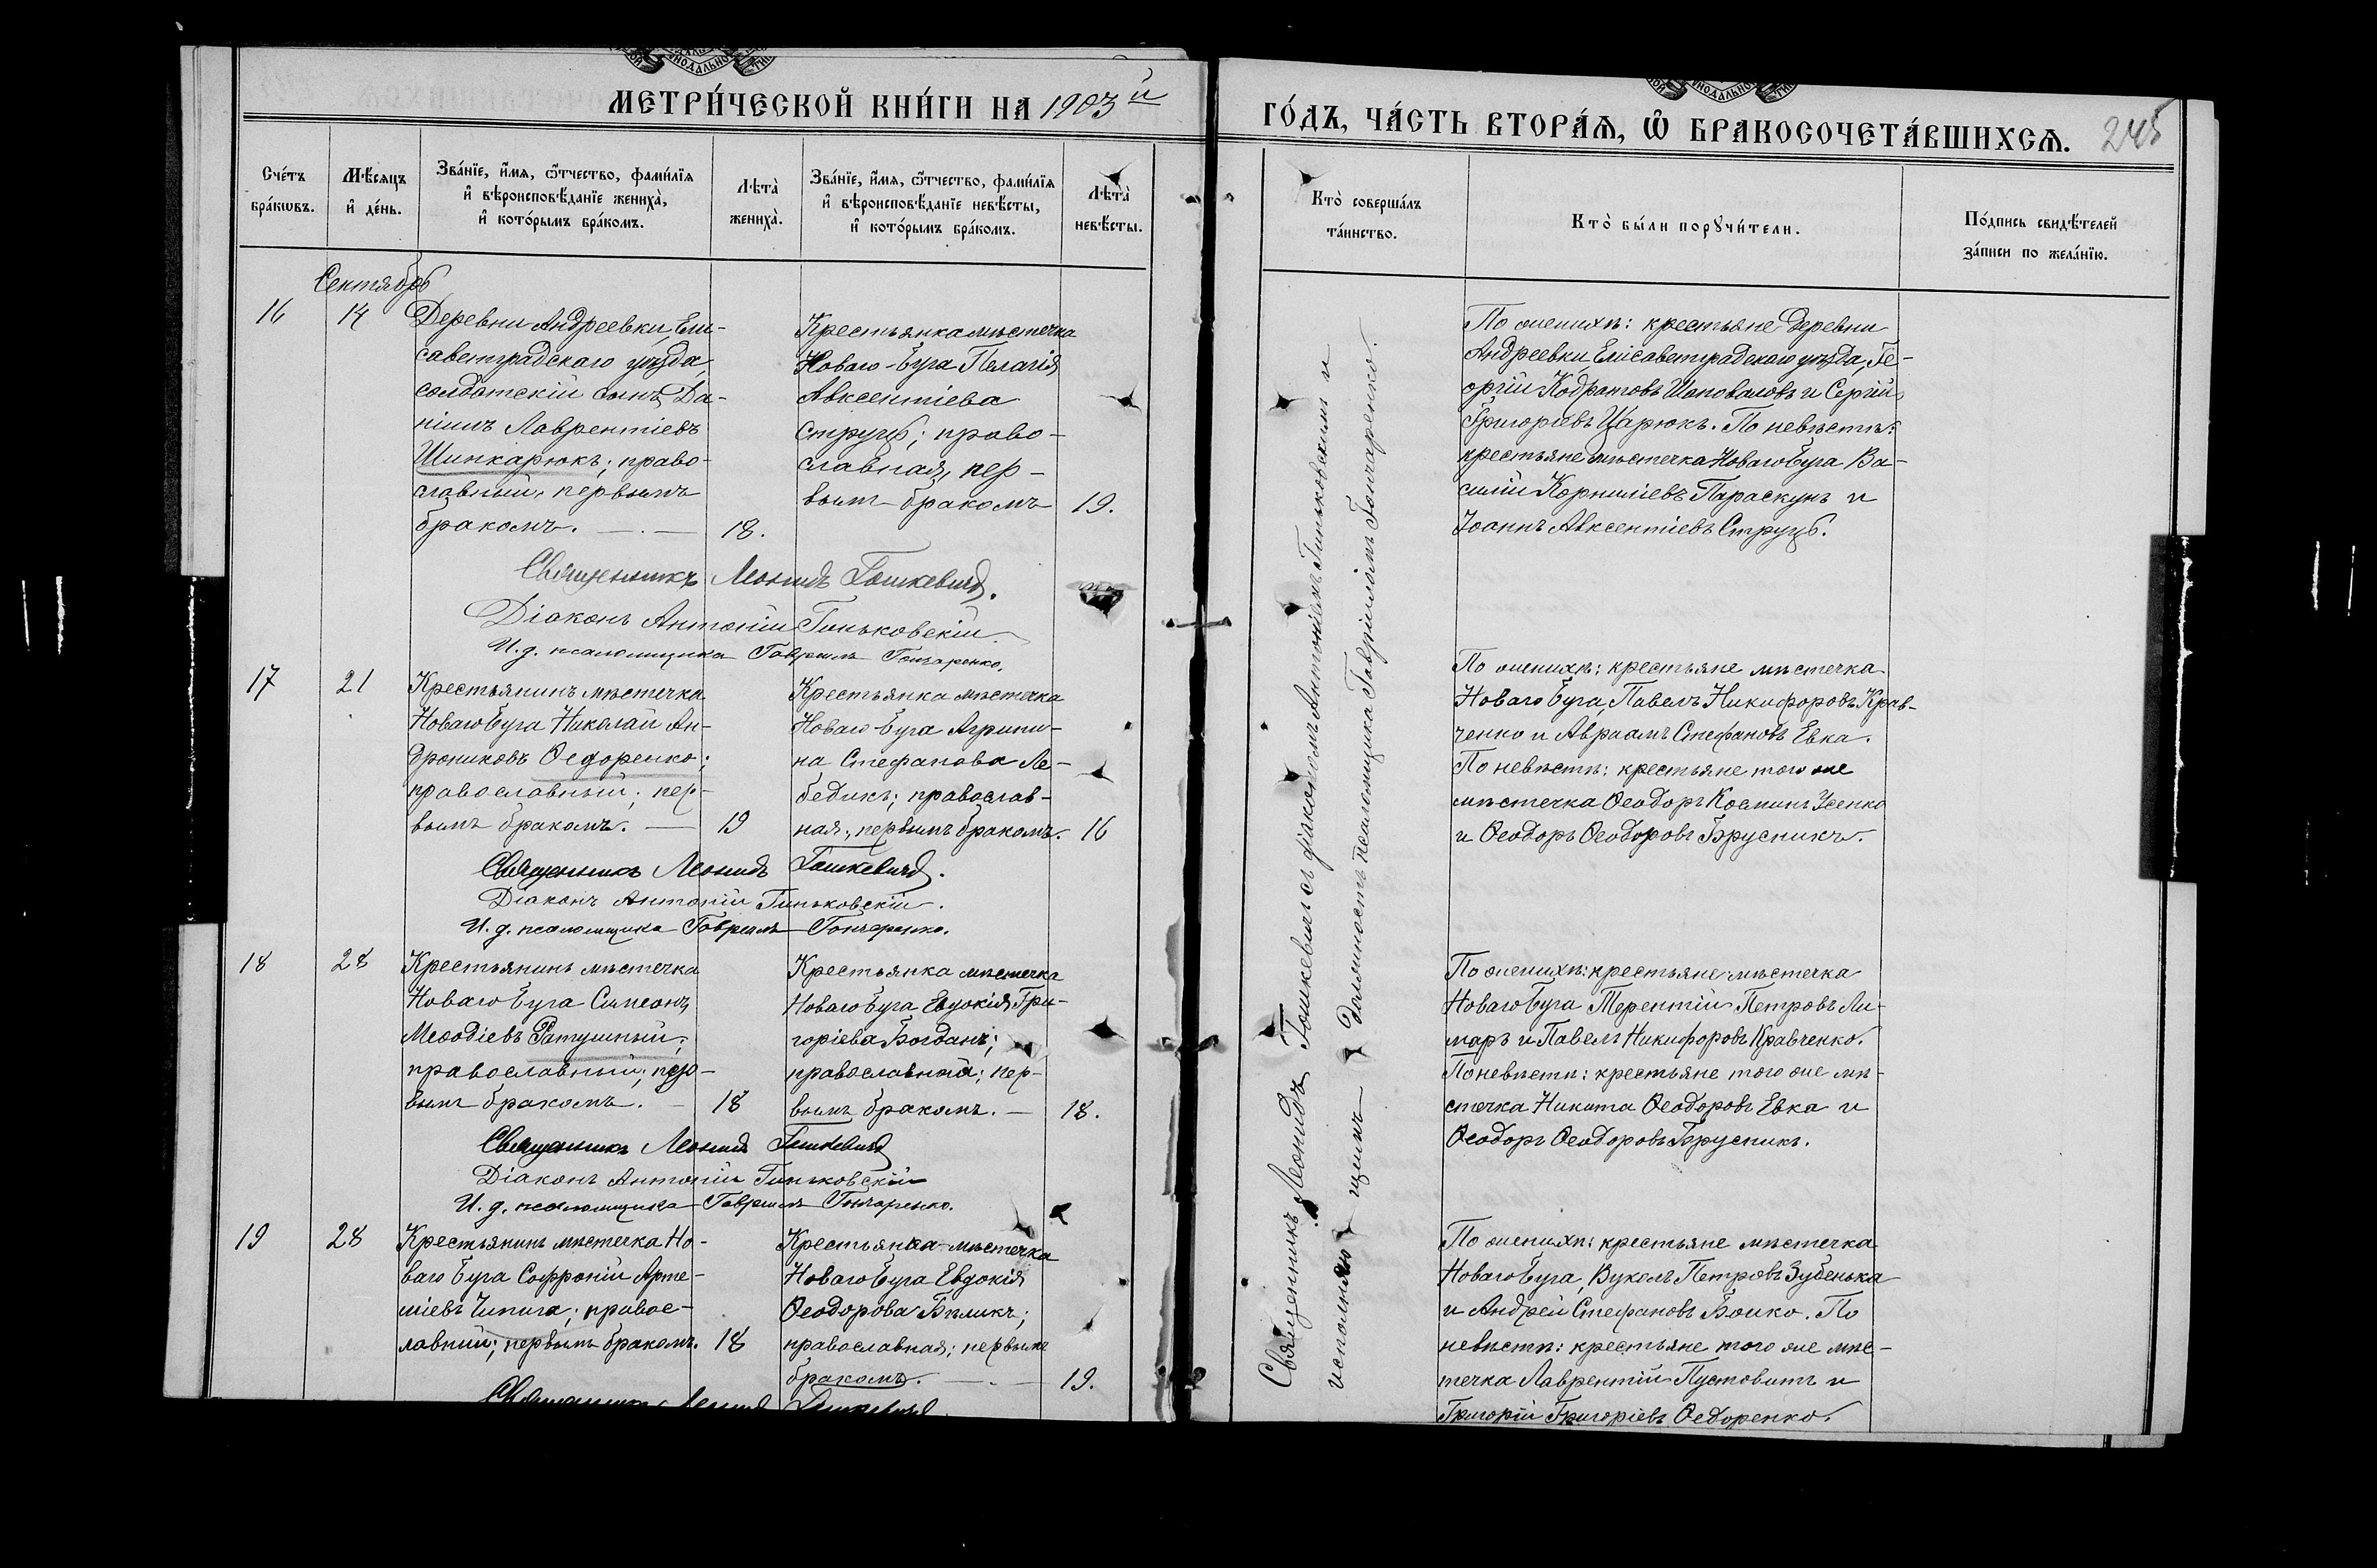 МЕТРИ́ЧЕСКОЙ КНИ́ГИ НА 1903 й
ГО́ДЪ, ЧА́СТЬ ВТОРА́Ѧ, Ѽ БРАКОСОЧЕТА́ВШИХСѦ.
245
Сче́тъ бра́ковъ.
Мѣ́сяцъ и де́нь.
Зва́нїе, и́мя, ѿтчество, фами́лїя и вѣроисповѣ́данїе жениха̀, и кото́рымъ бра́комъ.
Лѣта̀ жениха̀.
Зва́нїе, и́мя, ѿтчество, фами́лїя и вѣроисповѣ́данїе невѣ́сты, и кото́рымъ бра́комъ.
Лѣта̀ невѣ́сты.
Кто̀ соверша́лъ та́инство.
Кто̀ бы́ли порꙋчи́тели.
По́дпись свидѣ́телей за́писи по жела́нїю.
Сентябрь
16
14
Деревни Андреевки, Ели-
саветградскаго уѣзда,
солдатскій сынъ Да-
ніилъ Лаврентіевъ
Шинкарюкъ; право-
славный, первымъ
бракомъ. —.—
18.
Крестьянка мѣстечка
Новаго-Буга Пелагія
Авксентіева
Струць; право-
славная, пер-
вымъ бракомъ
19.
По женихѣ: крестьяне деревни
Андреевки, Елисаветградскаго уѣзда, Ге-
оргій Кодратовъ Шаповаловъ и Сергій
Григоріевъ Царюкъ. По невѣстѣ:
крестьяне мѣстечка Новаго Буга Ва-
силій Корниліевъ Параскунъ и
Іоаннъ Авксентіевъ Струць.
Священникъ Леонидъ Гошкевичъ.
Діаконъ Антоній Гиньковскій.
И. д. псаломщика Гавриилъ Гончаренко.
17
21
Крестьянинъ мѣстечка
Новаго Буга Николай Ан-
дрониковъ Ѳедоренко;
православный; пер-
вымъ бракомъ. —
19
Крестьянка мѣстечка
Новаго-Буга Агрипи-
на Стефанова Ле-
бедикъ; православ-
ная, первымъ бракомъ.
16
По женихѣ: крестьяне мѣстечка
Новаго Буга, Павелъ Никифоровъ Крав-
ченко и Авраамъ Стефановъ Евка.
По невѣстѣ: крестьяне того же
мѣстечка Ѳеодоръ Косминъ Усенко
и Ѳеодоръ Ѳеодоровъ Брусникъ.
Священникъ Леонидъ Гошкевичъ.
Діаконъ Антоній Гиньковскій.
И. д. псаломщика Гавриилъ Гончаренко.
18
28
Крестьянинъ мѣстечка
Новаго Буга Симеонъ
Меѳодіевъ Ратушный;
православный; пер-
вымъ бракомъ. —
18
Крестьянка мѣстечка
Новаго Буга Евдокія Гри-
горіева Богданъ;
православная; пер-
вымъ бракомъ. —
18.
По женихѣ: крестьяне мѣстечка
Новаго Буга Терентій Петровъ Ли-
маръ и Павелъ Никифоровъ Кравченко.
По невѣстѣ: крестьяне того же мѣ-
стечка Никита Ѳеодоровъ Евка и
Ѳеодоръ Ѳеодоровъ Брусникъ.
Священникъ Леонидъ Гошкевичъ
Діаконъ Антоній Гиньковскій
И. д. псаломщика Гавриилъ Гончаренко.
19
28
Крестьянинъ мѣстечка Но-
ваго Буга Софроній Арте-
міевъ Чипига; правос-
лавный; первымъ бракомъ.
18
Крестьянка мѣстечка
Новаго Буга Евдокія
Ѳеодорова Бѣликъ;
православная; первымъ
бракомъ. —.—
19.
По женихѣ: крестьяне мѣстечка
Новаго Буга, Вуколъ Петровъ Зубенька
и Андрей Стефановъ Бойко. По
невѣстѣ: крестьяне того же мѣс-
течка Лаврентій Пустовитъ и
Григорій Григоріевъ Ѳедоренко.
Священникъ Леонидъ Гошкевичъ.
Священникъ Леонидъ Гошкевичъ съ діакономъ Антоніемъ Гиньковскимъ и
исполняющимъ должность псаломщика Гавріиломъ Гончаренко.